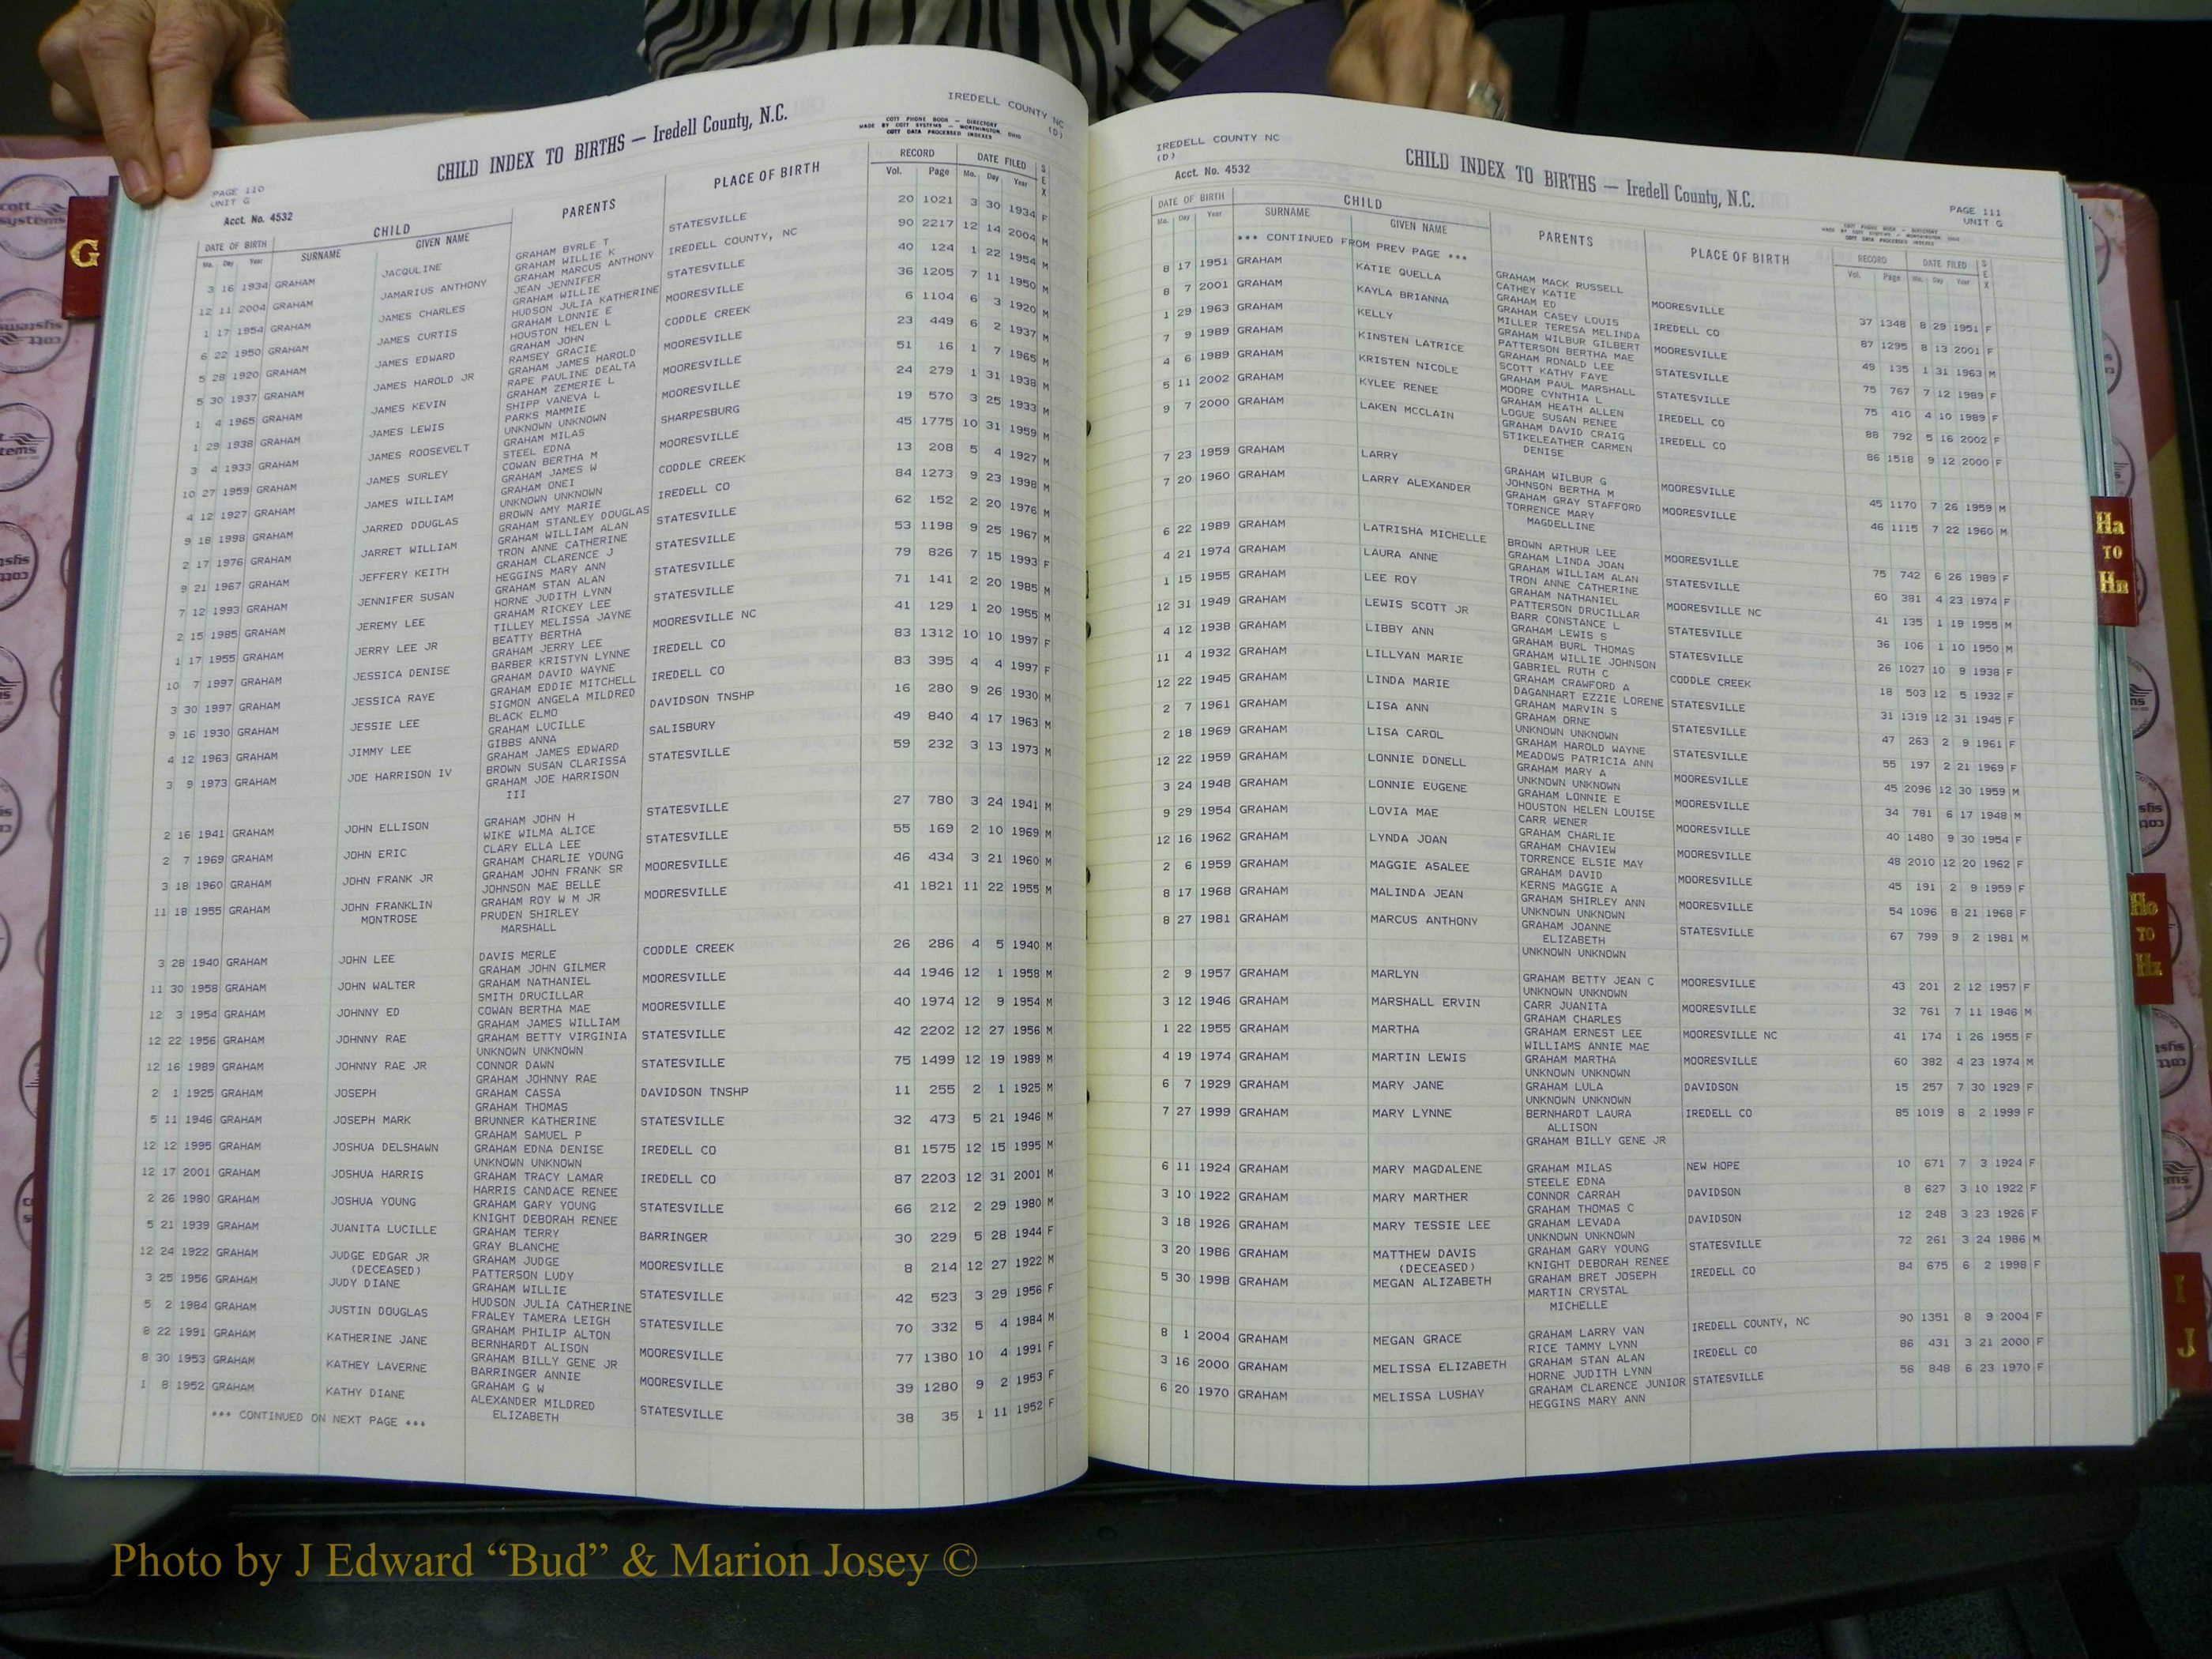 IREDELL COUNTY NC
(D)
CHILD INDEX TO BIRTHS — Iredell County, N.C.
COTT PHONE BOOK — DIRECTORY
MADE BY COTT SYSTEMS — WORTHINGTON, OHIO
COTT DATA PROCESSED INDEXES
PAGE 110
UNIT G
Acct. No. 4532
DATE OF BIRTH CHILD PARENTS PLACE OF BIRTH RECORD DATE FILED SEX
Mo. Day Year SURNAME GIVEN NAME Vol. Page Mo. Day Year
3 16 1934 GRAHAM JACQULINE GRAHAM BYRLE T STATESVILLE 20 1021 3 30 1934 F
GRAHAM WILLIE K
12 11 2004 GRAHAM JAMARIUS ANTHONY GRAHAM MARCUS ANTHONY IREDELL COUNTY, NC 90 2217 12 14 2004 M
JEAN JENNIFER
1 17 1954 GRAHAM JAMES CHARLES GRAHAM WILLIE STATESVILLE 40 124 1 22 1954 M
HUDSON JULIA KATHERINE
6 22 1950 GRAHAM JAMES CURTIS GRAHAM LONNIE E MOORESVILLE 36 1205 7 11 1950 M
HOUSTON HELEN L
5 28 1920 GRAHAM JAMES EDWARD GRAHAM JOHN CODDLE CREEK 6 1104 6 3 1920 M
RAMSEY GRACIE
5 30 1937 GRAHAM JAMES HAROLD JR GRAHAM JAMES HAROLD MOORESVILLE 23 449 6 2 1937 M
RAPE PAULINE DEALTA
1 4 1965 GRAHAM JAMES KEVIN GRAHAM ZEMERIE L MOORESVILLE 51 16 1 7 1965 M
SHIPP VANEVA L
1 29 1938 GRAHAM JAMES LEWIS PARKS MAMMIE MOORESVILLE 24 279 1 31 1938 M
UNKNOWN UNKNOWN
3 4 1933 GRAHAM JAMES ROOSEVELT GRAHAM MILAS SHARPESBURG 19 570 3 25 1933 M
STEEL EDNA
10 27 1959 GRAHAM JAMES SURLEY COWAN BERTHA M MOORESVILLE 45 1775 10 31 1959 M
GRAHAM JAMES W
4 12 1927 GRAHAM JAMES WILLIAM GRAHAM ONEI CODDLE CREEK 13 208 5 4 1927 M
UNKNOWN UNKNOWN
9 18 1998 GRAHAM JARRED DOUGLAS BROWN AMY MARIE IREDELL CO 84 1273 9 23 1998 M
GRAHAM STANLEY DOUGLAS
2 17 1976 GRAHAM JARRET WILLIAM GRAHAM WILLIAM ALAN STATESVILLE 62 152 2 20 1976 M
TRON ANNE CATHERINE
9 21 1967 GRAHAM JEFFERY KEITH GRAHAM CLARENCE J STATESVILLE 53 1198 9 25 1967 M
HEGGINS MARY ANN
7 12 1993 GRAHAM JENNIFER SUSAN GRAHAM STAN ALAN STATESVILLE 79 826 7 15 1993 F
HORNE JUDITH LYNN
2 15 1985 GRAHAM JEREMY LEE GRAHAM RICKEY LEE STATESVILLE 71 141 2 20 1985 M
TILLEY MELISSA JAYNE
1 17 1955 GRAHAM JERRY LEE JR BEATTY BERTHA MOORESVILLE NC 41 129 1 20 1955 M
GRAHAM JERRY LEE
10 7 1997 GRAHAM JESSICA DENISE BARBER KRISTYN LYNNE IREDELL CO 83 1312 10 10 1997 F
GRAHAM DAVID WAYNE
3 30 1997 GRAHAM JESSICA RAYE GRAHAM EDDIE MITCHELL IREDELL CO 83 395 4 4 1997 F
SIGMON ANGELA MILDRED
9 16 1930 GRAHAM JESSIE LEE BLACK ELMO DAVIDSON TNSHP 16 280 9 26 1930 M
GRAHAM LUCILLE
4 12 1963 GRAHAM JIMMY LEE GIBBS ANNA SALISBURY 49 840 4 17 1963 M
GRAHAM JAMES EDWARD
3 9 1973 GRAHAM JOE HARRISON IV BROWN SUSAN CLARISSA STATESVILLE 59 232 3 13 1973 M
GRAHAM JOE HARRISON
III
2 16 1941 GRAHAM JOHN ELLISON GRAHAM JOHN H STATESVILLE 27 780 3 24 1941 M
WIKE WILMA ALICE
2 7 1969 GRAHAM JOHN ERIC CLARY ELLA LEE STATESVILLE 55 169 2 10 1969 M
GRAHAM CHARLIE YOUNG
3 18 1960 GRAHAM JOHN FRANK JR GRAHAM JOHN FRANK SR MOORESVILLE 46 434 3 21 1960 M
JOHNSON MAE BELLE
11 18 1955 GRAHAM JOHN FRANKLIN GRAHAM ROY W M JR MOORESVILLE 41 1821 11 22 1955 M
MONTROSE PRUDEN SHIRLEY
MARSHALL
3 28 1940 GRAHAM JOHN LEE DAVIS MERLE CODDLE CREEK 26 286 4 5 1940 M
GRAHAM JOHN GILMER
11 30 1958 GRAHAM JOHN WALTER GRAHAM NATHANIEL MOORESVILLE 44 1946 12 1 1958 M
SMITH DRUCILLAR
12 3 1954 GRAHAM JOHNNY ED COWAN BERTHA MAE MOORESVILLE 40 1974 12 9 1954 M
GRAHAM JAMES WILLIAM
12 22 1956 GRAHAM JOHNNY RAE GRAHAM BETTY VIRGINIA STATESVILLE 42 2202 12 27 1956 M
UNKNOWN UNKNOWN
12 16 1989 GRAHAM JOHNNY RAE JR CONNOR DAWN STATESVILLE 75 1499 12 19 1989 M
GRAHAM JOHNNY RAE
2 1 1925 GRAHAM JOSEPH GRAHAM CASSA DAVIDSON TNSHP 11 255 2 1 1925 M
GRAHAM THOMAS
5 11 1946 GRAHAM JOSEPH MARK BRUNNER KATHERINE STATESVILLE 32 473 5 21 1946 M
GRAHAM SAMUEL P
12 12 1995 GRAHAM JOSHUA DELSHAWN GRAHAM EDNA DENISE IREDELL CO 81 1575 12 15 1995 M
UNKNOWN UNKNOWN
12 17 2001 GRAHAM JOSHUA HARRIS GRAHAM TRACY LAMAR IREDELL CO 87 2203 12 31 2001 M
HARRIS CANDACE RENEE
2 26 1980 GRAHAM JOSHUA YOUNG GRAHAM GARY YOUNG STATESVILLE 66 212 2 29 1980 M
KNIGHT DEBORAH RENEE
5 21 1939 GRAHAM JUANITA LUCILLE GRAHAM TERRY BARRINGER 30 229 5 28 1944 F
GRAY BLANCHE
12 24 1922 GRAHAM JUDGE EDGAR JR GRAHAM JUDGE MOORESVILLE 8 214 12 27 1922 M
(DECEASED) PATTERSON LUDY
3 25 1956 GRAHAM JUDY DIANE GRAHAM WILLIE STATESVILLE 42 523 3 29 1956 F
HUDSON JULIA CATHERINE
5 2 1984 GRAHAM JUSTIN DOUGLAS FRALEY TAMERA LEIGH STATESVILLE 70 332 5 4 1984 M
GRAHAM PHILIP ALTON
8 22 1991 GRAHAM KATHERINE JANE BERNHARDT ALISON MOORESVILLE 77 1380 10 4 1991 F
GRAHAM BILLY GENE JR
8 30 1953 GRAHAM KATHEY LAVERNE BARRINGER ANNIE MOORESVILLE 39 1280 9 2 1953 F
GRAHAM G W
1 8 1952 GRAHAM KATHY DIANE ALEXANDER MILDRED STATESVILLE 38 35 1 11 1952 F
ELIZABETH
*** CONTINUED ON NEXT PAGE ***
IREDELL COUNTY NC
(D)
CHILD INDEX TO BIRTHS — Iredell County, N.C.
Acct. No. 4532
PAGE 111
UNIT G
COTT PHONE BOOK — DIRECTORY
MADE BY COTT SYSTEMS — WORTHINGTON, OHIO
COTT DATA PROCESSED INDEXES
DATE OF BIRTH CHILD PARENTS PLACE OF BIRTH RECORD DATE FILED SEX
Mo. Day Year SURNAME GIVEN NAME Vol. Page Mo. Day Year
*** CONTINUED FROM PREV PAGE ***
8 17 1951 GRAHAM KATIE QUELLA GRAHAM MACK RUSSELL MOORESVILLE 37 1348 8 29 1951 F
CATHEY KATIE
GRAHAM ED
8 7 2001 GRAHAM KAYLA BRIANNA GRAHAM CASEY LOUIS IREDELL CO 87 1295 8 13 2001 F
MILLER TERESA MELINDA
1 29 1963 GRAHAM KELLY GRAHAM WILBUR GILBERT MOORESVILLE 49 135 1 31 1963 M
PATTERSON BERTHA MAE
7 9 1989 GRAHAM KINSTEN LATRICE GRAHAM RONALD LEE STATESVILLE 75 767 7 12 1989 F
SCOTT KATHY FAYE
4 6 1989 GRAHAM KRISTEN NICOLE GRAHAM PAUL MARSHALL STATESVILLE 75 410 4 10 1989 F
MOORE CYNTHIA L
5 11 2002 GRAHAM KYLEE RENEE GRAHAM HEATH ALLEN IREDELL CO 88 792 5 16 2002 F
LOGUE SUSAN RENEE
9 7 2000 GRAHAM LAKEN MCCLAIN GRAHAM DAVID CRAIG IREDELL CO 86 1518 9 12 2000 F
STIKELEATHER CARMEN
DENISE
7 23 1959 GRAHAM LARRY GRAHAM WILBUR G MOORESVILLE 45 1170 7 26 1959 M
JOHNSON BERTHA M
7 20 1960 GRAHAM LARRY ALEXANDER GRAHAM GRAY STAFFORD MOORESVILLE 46 1115 7 22 1960 M
TORRENCE MARY
MAGDELLINE
6 22 1989 GRAHAM LATRISHA MICHELLE BROWN ARTHUR LEE MOORESVILLE 75 742 6 26 1989 F
GRAHAM LINDA JOAN
4 21 1974 GRAHAM LAURA ANNE GRAHAM WILLIAM ALAN STATESVILLE 60 381 4 23 1974 F
TRON ANNE CATHERINE
1 15 1955 GRAHAM LEE ROY GRAHAM NATHANIEL MOORESVILLE NC 41 135 1 19 1955 M
PATTERSON DRUCILLAR
12 31 1949 GRAHAM LEWIS SCOTT JR BARR CONSTANCE L STATESVILLE 36 106 1 10 1950 M
GRAHAM LEWIS S
4 12 1938 GRAHAM LIBBY ANN GRAHAM BURL THOMAS STATESVILLE 26 1027 10 9 1938 F
GRAHAM WILLIE JOHNSON
11 4 1932 GRAHAM LILLYAN MARIE GABRIEL RUTH C CODDLE CREEK 18 503 12 5 1932 F
GRAHAM CRAWFORD A
12 22 1945 GRAHAM LINDA MARIE DAGANHART EZZIE LORENE STATESVILLE 31 1319 12 31 1945 F
GRAHAM MARVIN S
2 7 1961 GRAHAM LISA ANN GRAHAM ORNE STATESVILLE 47 263 2 9 1961 F
UNKNOWN UNKNOWN
2 18 1969 GRAHAM LISA CAROL GRAHAM HAROLD WAYNE STATESVILLE 55 197 2 21 1969 F
MEADOWS PATRICIA ANN
12 22 1959 GRAHAM LONNIE DONELL GRAHAM MARY A MOORESVILLE 45 2096 12 30 1959 M
UNKNOWN UNKNOWN
3 24 1948 GRAHAM LONNIE EUGENE GRAHAM LONNIE E MOORESVILLE 34 781 6 17 1948 M
HOUSTON HELEN LOUISE
9 29 1954 GRAHAM LOVIA MAE CARR WENER MOORESVILLE 40 1480 9 30 1954 F
GRAHAM CHARLIE
12 16 1962 GRAHAM LYNDA JOAN GRAHAM CHAVIEW MOORESVILLE 48 2010 12 20 1962 F
TORRENCE ELSIE MAY
2 6 1959 GRAHAM MAGGIE ASALEE GRAHAM DAVID MOORESVILLE 45 191 2 9 1959 F
KERNS MAGGIE A
8 17 1968 GRAHAM MALINDA JEAN GRAHAM SHIRLEY ANN MOORESVILLE 54 1096 8 21 1968 F
UNKNOWN UNKNOWN
8 27 1981 GRAHAM MARCUS ANTHONY GRAHAM JOANNE STATESVILLE 67 799 9 2 1981 M
ELIZABETH
UNKNOWN UNKNOWN
2 9 1957 GRAHAM MARLYN GRAHAM BETTY JEAN C MOORESVILLE 43 201 2 12 1957 F
UNKNOWN UNKNOWN
3 12 1946 GRAHAM MARSHALL ERVIN CARR JUANITA MOORESVILLE 32 761 7 11 1946 M
GRAHAM CHARLES
1 22 1955 GRAHAM MARTHA GRAHAM ERNEST LEE MOORESVILLE NC 41 174 1 26 1955 F
WILLIAMS ANNIE MAE
4 19 1974 GRAHAM MARTIN LEWIS GRAHAM MARTHA MOORESVILLE 60 382 4 23 1974 M
UNKNOWN UNKNOWN
6 7 1929 GRAHAM MARY JANE GRAHAM LULA DAVIDSON 15 257 7 30 1929 F
UNKNOWN UNKNOWN
7 27 1999 GRAHAM MARY LYNNE BERNHARDT LAURA IREDELL CO 85 1019 8 2 1999 F
ALLISON
GRAHAM BILLY GENE JR
6 11 1924 GRAHAM MARY MAGDALENE GRAHAM MILAS NEW HOPE 10 671 7 3 1924 F
STEELE EDNA
3 10 1922 GRAHAM MARY MARTHER CONNOR CARRAH DAVIDSON 8 627 3 10 1922 F
GRAHAM THOMAS C
3 18 1926 GRAHAM MARY TESSIE LEE GRAHAM LEVADA DAVIDSON 12 248 3 23 1926 F
UNKNOWN UNKNOWN
3 20 1986 GRAHAM MATTHEW DAVIS GRAHAM GARY YOUNG STATESVILLE 72 261 3 24 1986 M
(DECEASED) KNIGHT DEBORAH RENEE
5 30 1998 GRAHAM MEGAN ALIZABETH GRAHAM BRET JOSEPH IREDELL CO 84 675 6 2 1998 F
MARTIN CRYSTAL
MICHELLE
8 1 2004 GRAHAM MEGAN GRACE GRAHAM LARRY VAN IREDELL COUNTY, NC 90 1351 8 9 2004 F
RICE TAMMY LYNN
3 16 2000 GRAHAM MELISSA ELIZABETH GRAHAM STAN ALAN IREDELL CO 86 431 3 21 2000 F
HORNE JUDITH LYNN
6 20 1970 GRAHAM MELISSA LUSHAY GRAHAM CLARENCE JUNIOR STATESVILLE 56 848 6 23 1970 F
HEGGINS MARY ANN
G
Ha
TO
Hn
Ho
TO
Hz
I
J
cott
systems
Photo by J Edward “Bud” & Marion Josey ©